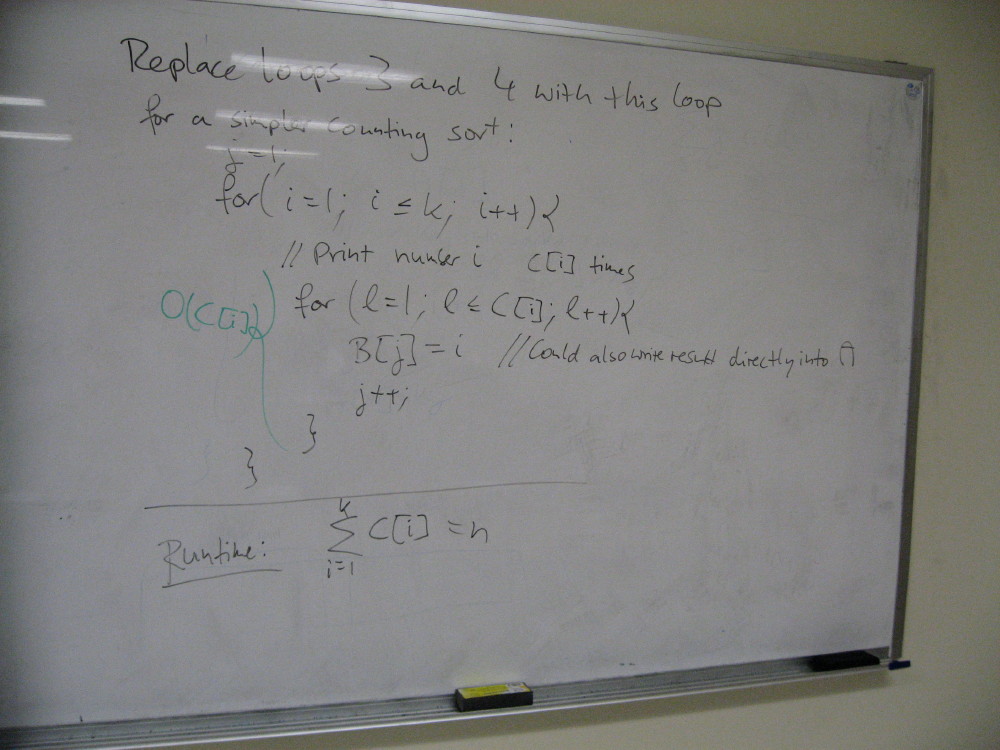 Replace loops 3 and 4 with this loop
for a simpler counting sort:
j=1;
for( i=1; i ≤ k; i++){
// Print number i C[i] times
O(C[i])
for (l=1; l ≤ C[i]; l++){
B[j] = i //Could also write result directly into A
j++;
}
}
Runtime: k
∑ C[i] = n
i=1